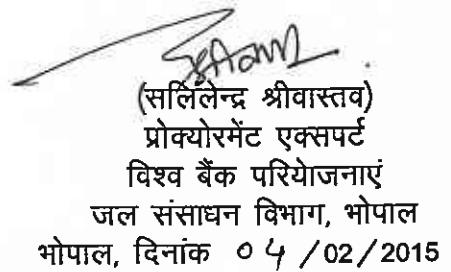 (सलिलेन्द्र श्रीवास्तव)
प्रोक्योरमेंट एक्सपर्ट
विश्व बैंक परियेाजनाएं
जल संसाधन विभाग, भोपाल
भोपाल, दिनांक 04/02/2015